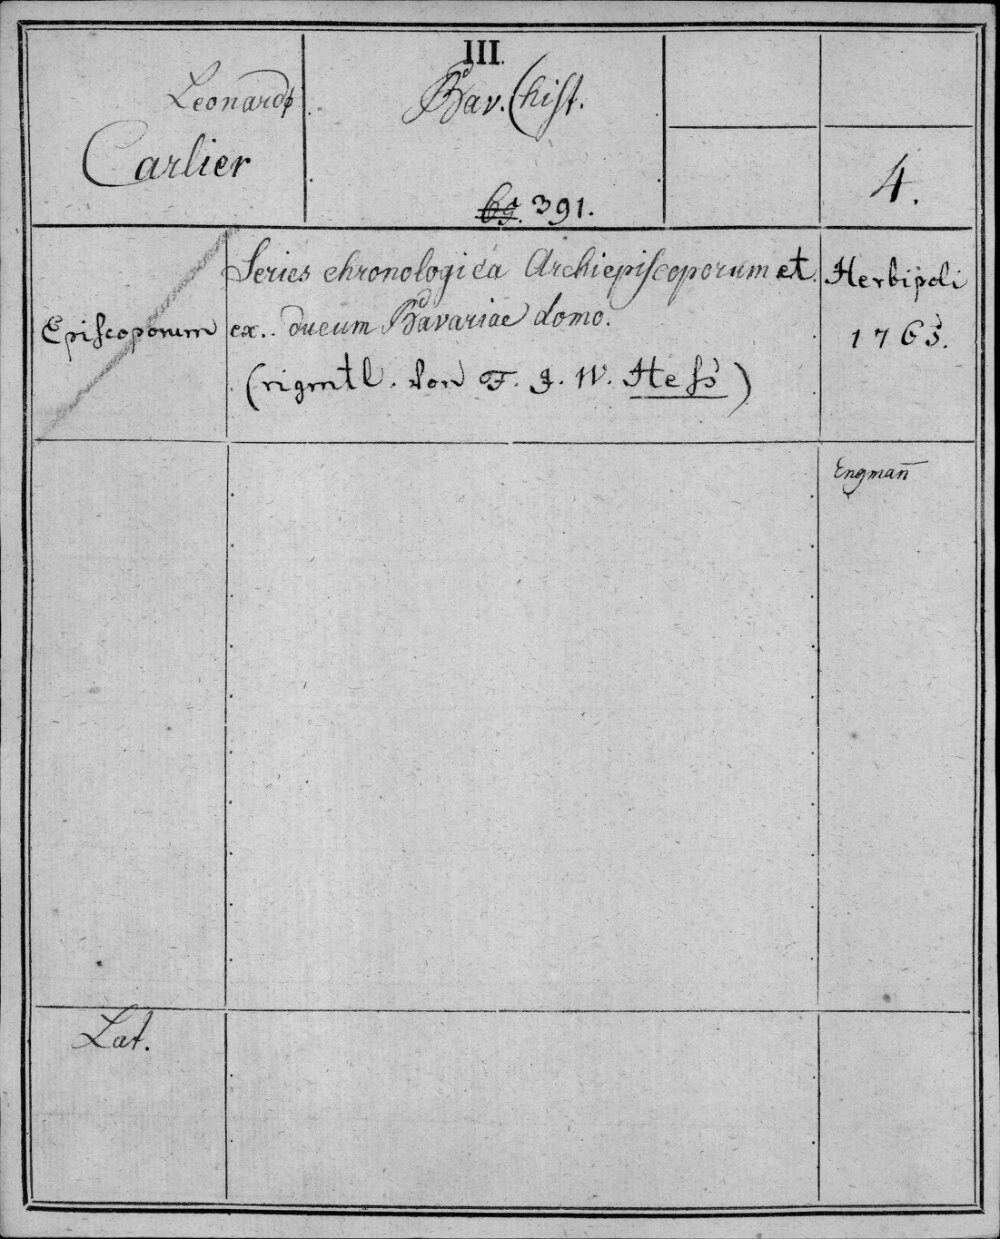 III.
Leonardo
Carlier
Bav. hist.
391.
4.
Series chronologica Archiepiscoporum et
Episcoporum ex.. ducum Bavariae domo.
(eigentl. von F. J. W. Hess)
Herbipoli
1765.
Engmañ
Lat.